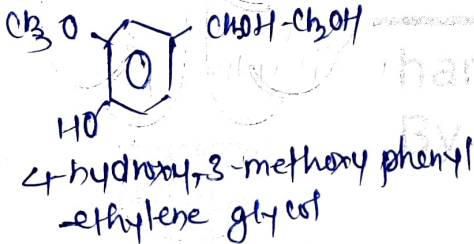 CH3 O CHOH-CH2OH
HO
4-hydroxy,3-methoxy phenyl
-ethylene glycol